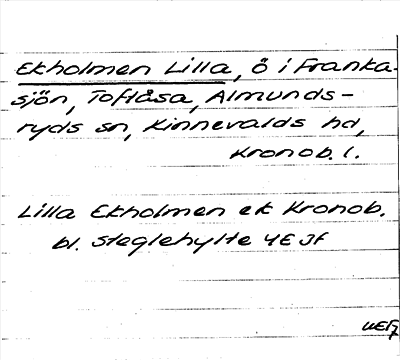 Ekholmen Lilla, ö i Franka-
sjön, Toftåsa, Almunds-
ryds sn, Kinnevalds hd,
Kronob. l.
Lilla Ekholmen ek Kronob.
bl. Steglehylte 4E JF